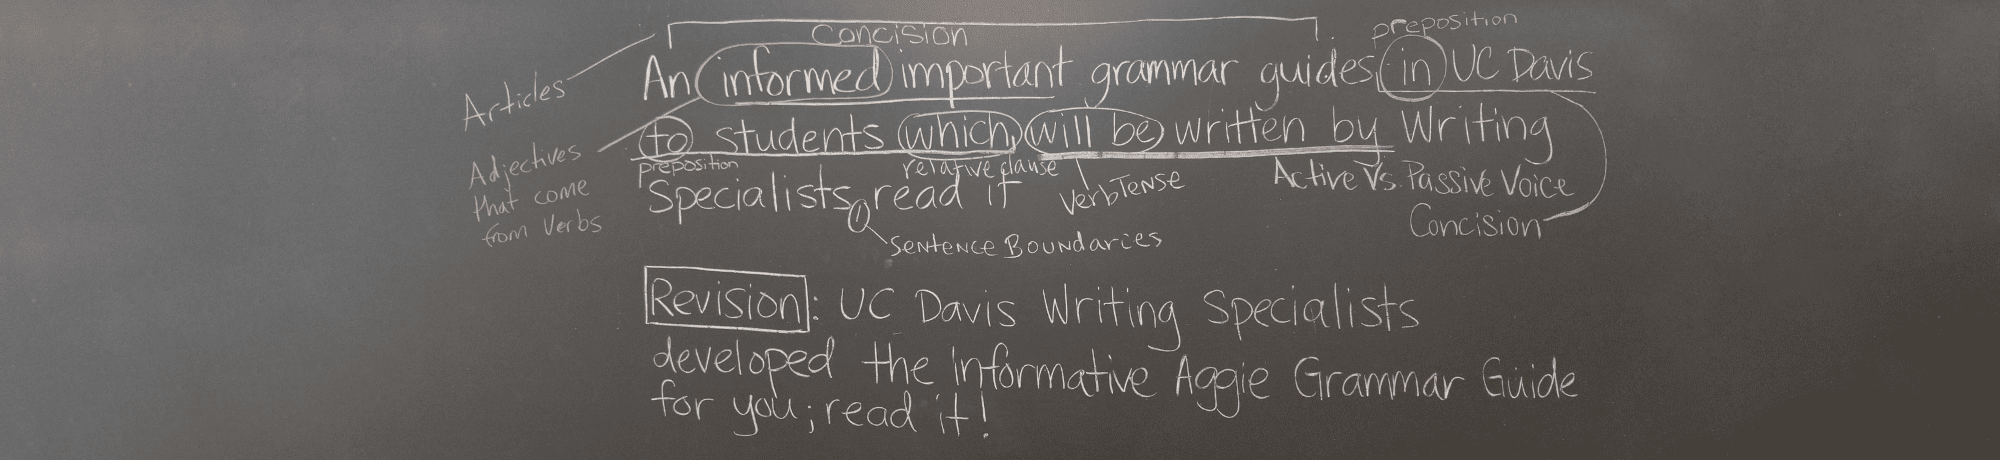 Concision
preposition
Articles
An informed important grammar guides in UC Davis
to students which will be written by Writing
Adjectives
that come
from Verbs
preposition
relative clause
Verb Tense
Active Vs. Passive Voice
Specialists, read it
Concision
Sentence Boundaries
Revision: UC Davis Writing Specialists
developed the informative Aggie Grammar Guide
for you; read it!